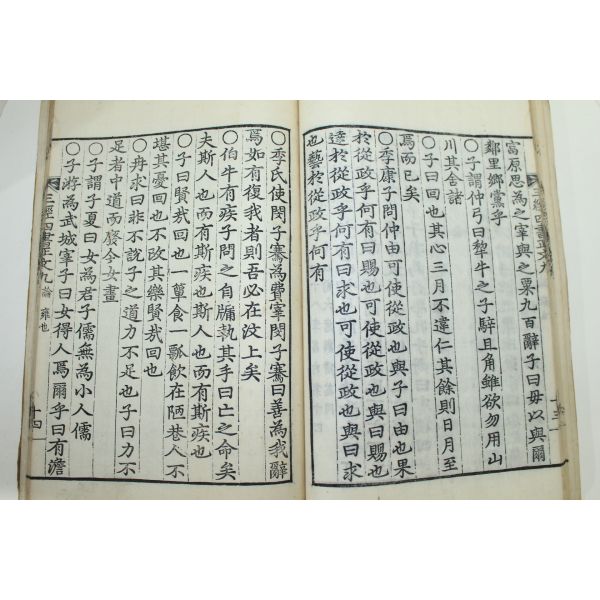 富原思為之宰與之粟九百辭子曰毋以與爾
鄰里鄉黨乎
○子謂仲弓曰犂牛之子騂且角雖欲勿用山
川其舍諸
○子曰回也其心三月不違仁其餘則日月至
焉而已矣
○季康子問仲由可使從政也與子曰由也果
於從政乎何有曰賜也可使從政也與曰賜也
達於從政乎何有曰求也可使從政也與曰求
也藝於從政乎何有
○季氏使閔子騫為費宰閔子騫曰善為我辭
焉如有復我者則吾必在汶上矣
○伯牛有疾子問之自牖執其手曰亡之命矣
夫斯人也而有斯疾也斯人也而有斯疾也
○子曰賢哉回也一簞食一瓢飲在陋巷人不
堪其憂回也不改其樂賢哉回也
○冉求曰非不說子之道力不足也子曰力不
足者中道而廢今女畫
○子謂子夏曰女為君子儒無為小人儒
○子游為武城宰子曰女得人焉爾乎曰有澹
三經四書正文九 論 雍也 十四